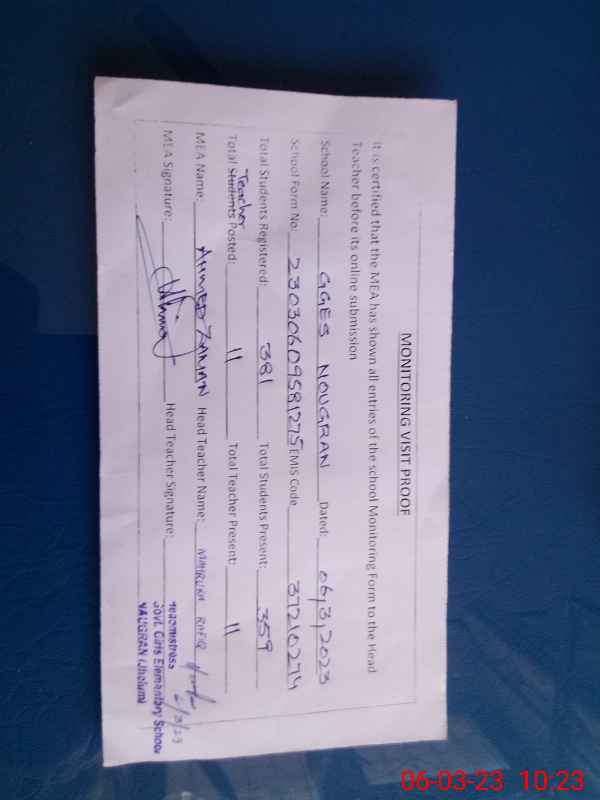 MONITORING VISIT PROOF
It is certified that the MEA has shown all entries of the school Monitoring Form to the Head
Teacher before its online submission
School Name: GGES NOUGRAN Dated: 06/3/2023
School Form No: 23030609581275 EMIS Code 37210274
Total Students Registered: 381 Total Students Present: 359
Teacher
Total Students Posted: 11 Total Teacher Present: 11
MEA Name: AHMED ZAMAN Head Teacher Name: MAHRUKH RAFIQ
MEA Signature: Head Teacher Signature:
6/3/23
Headmistress
Govt. Girls Elementary School
NAUGRAN (Jhelum)
06-03-23 10:23